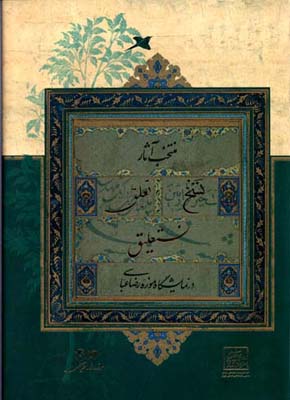 منتخب آثار
نسخ تعلیق
نستعلیق
در نمایشگاه موزه رضا عباسی